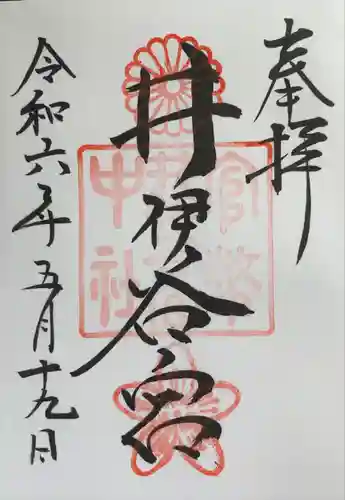 奉拝
井伊谷宮
官幣
中社
令和六年五月十九日